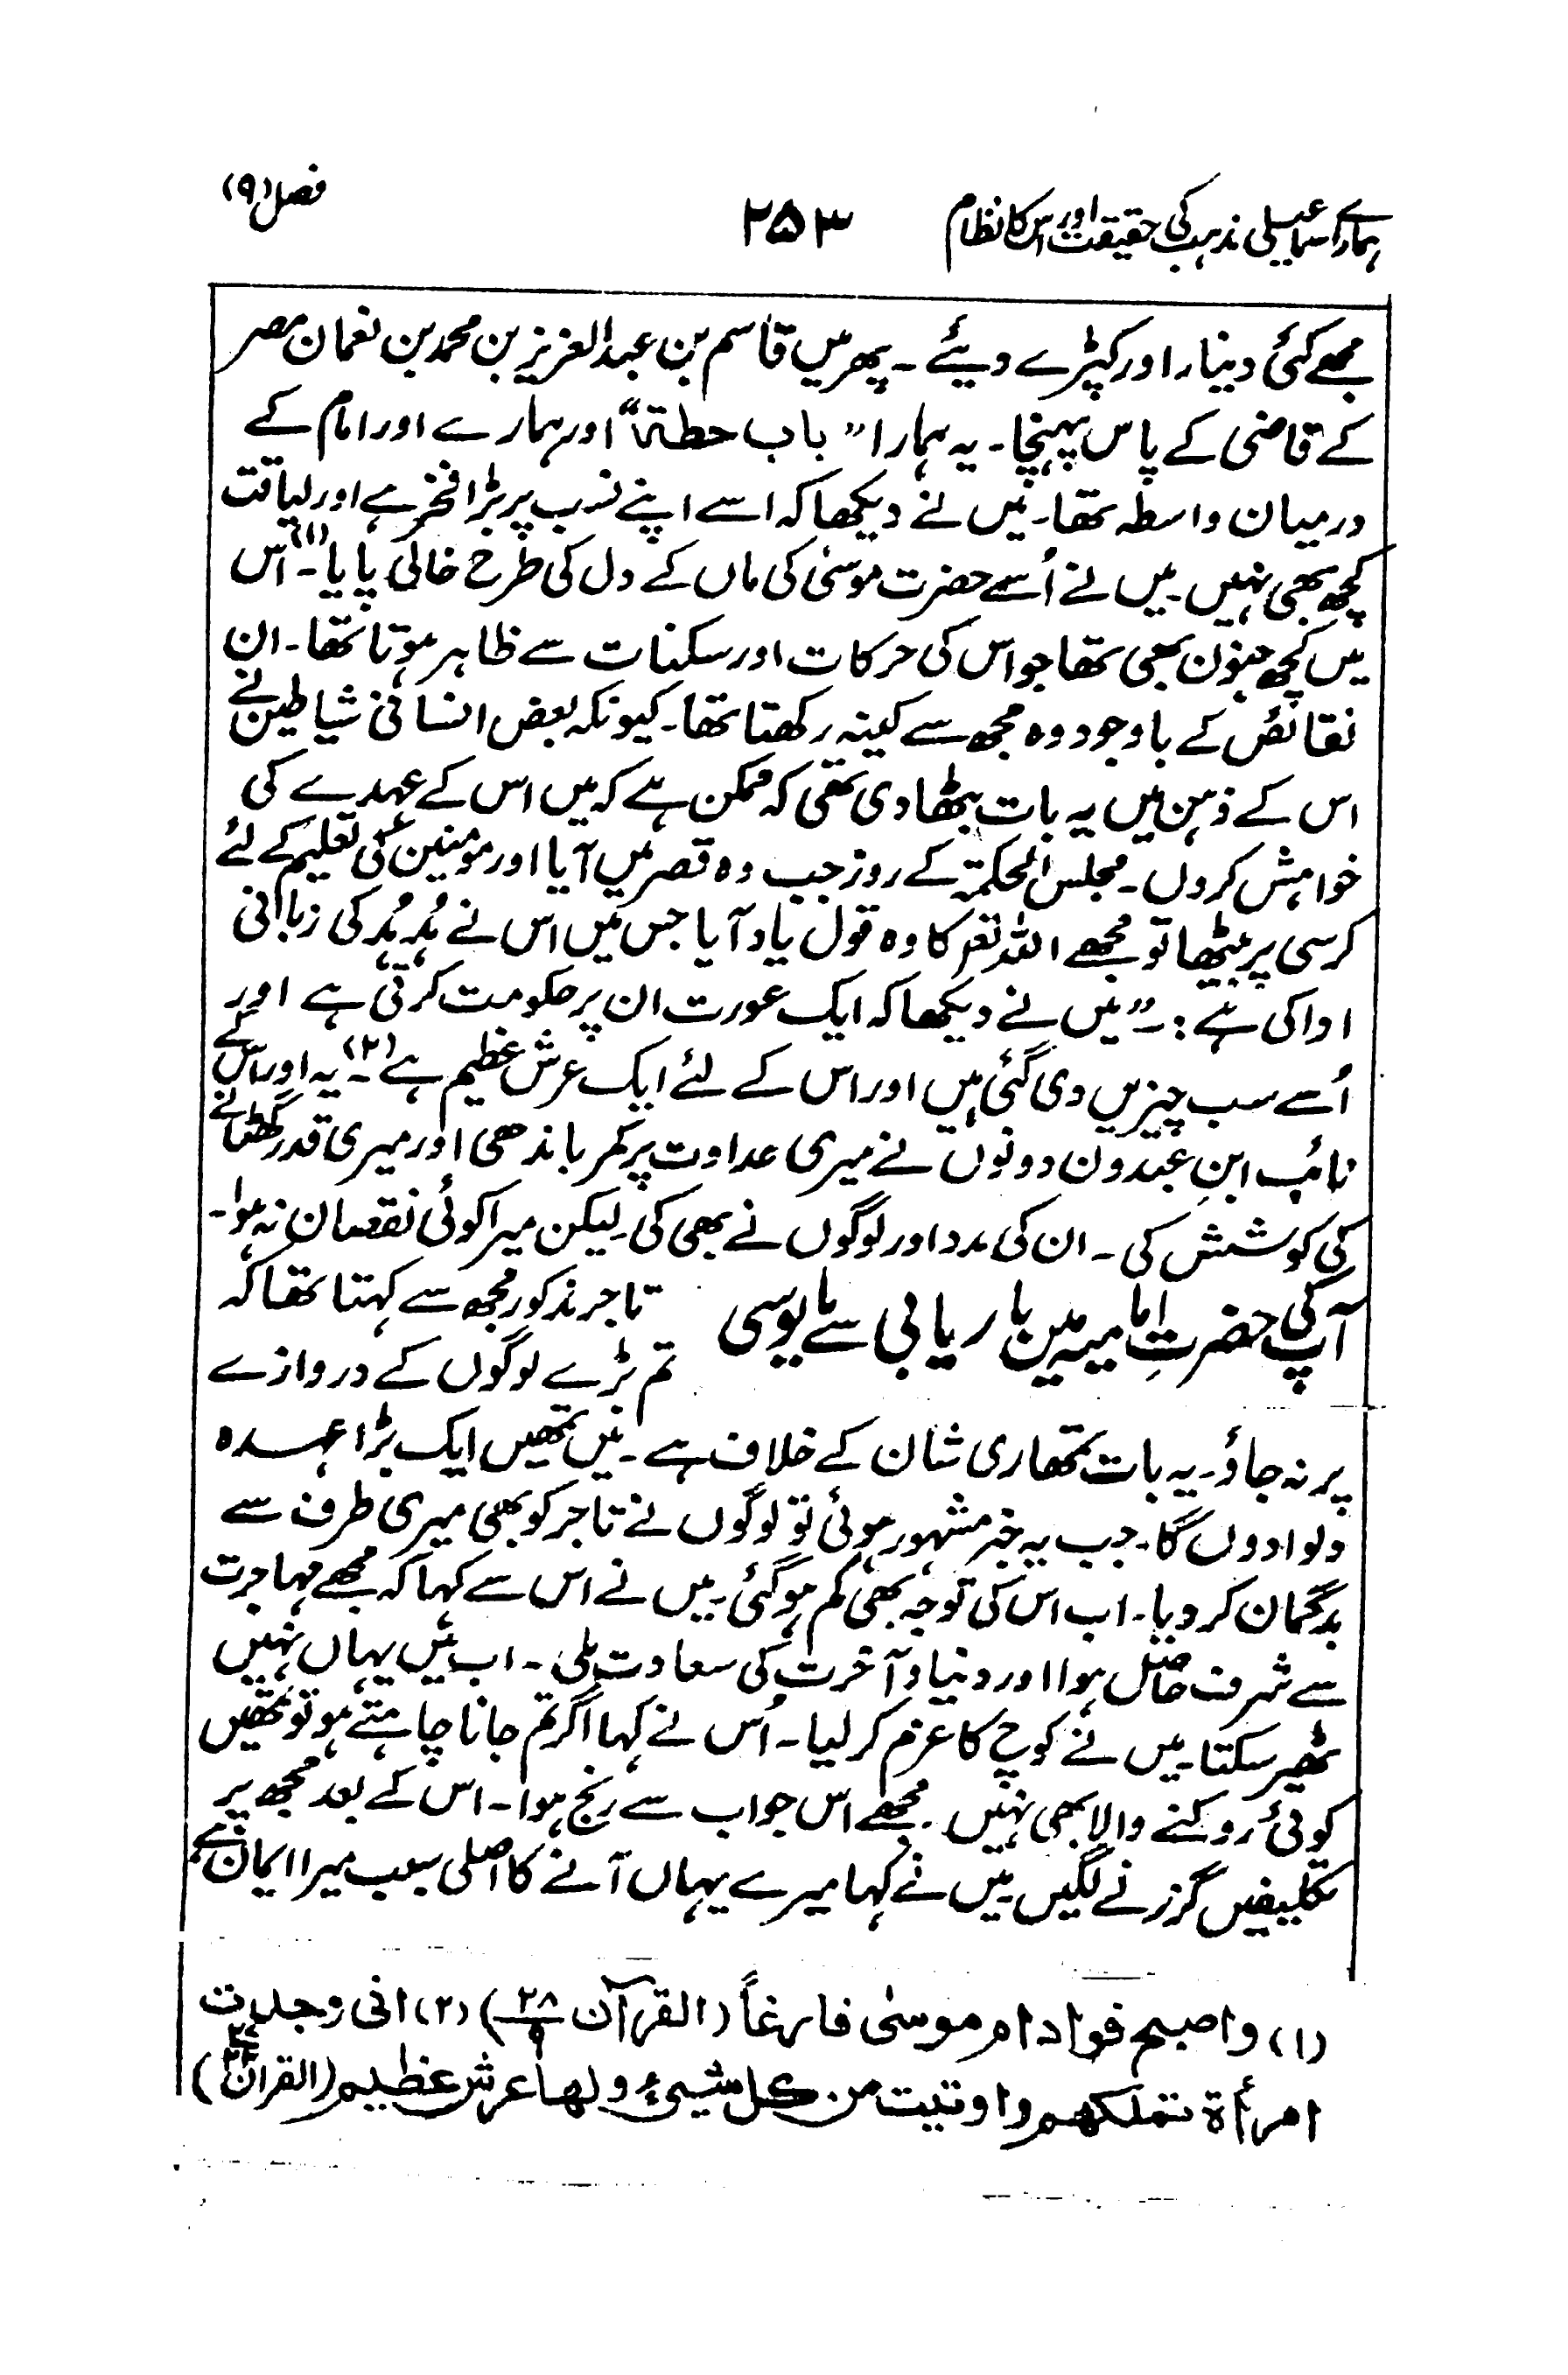 ہمارے اسماعیلی مذہب کی حقیقت اور اس کا نظام ۲۵۳ فصل (۹)
مجھے کئی دینار اور کپڑے دیئے ۔ پھر میں قاسم بن عبدالعزیز بن محمد بن نعمان مصر
کے قاضی کے پاس پہنچا ۔ یہ ہمارا ”باب حطۃ“ اور ہمارے اور امام کے
درمیان واسطہ تھا ۔ میں نے دیکھا کہ اسے اپنے نسب پر بڑا فخر ہے اور لیاقت
کچھ بھی نہیں ۔ میں نے اُسے حضرت موسیٰ کی ماں کے دل کی طرح خالی پایا (۱) ۔ اس
میں کچھ جنون بھی تھا جو اس کی حرکات اور سکنات سے ظاہر ہوتا تھا ۔ ان
نقائص کے باوجود وہ مجھ سے کینہ رکھتا تھا ۔ کیونکہ بعض انسانی شیاطین نے
اس کے ذہن میں یہ بات بٹھا دی تھی کہ ممکن ہے کہ میں اس کے عہدے کی
خواہش کروں ۔ مجلس الحکمۃ کے روز جب وہ قصر میں آیا اور مومنین کی تعلیم کے لئے
کرسی پر بیٹھا تو مجھے اللہ تعم کا وہ قول یاد آیا جس میں اس نے ہُد ہُد کی زبانی
ادا کی ہے :۔ ”میں نے دیکھا کہ ایک عورت ان پر حکومت کرتی ہے اور
اُسے سب چیزیں دی گئی ہیں اور اس کے لئے ایک عرش عظیم ہے (۲) ۔ یہ اور اس کے
نائب ابنِ عبدون دونوں نے میری عداوت پر کمر باندھی اور میری قدر گھٹانے
کی کوشش کی ۔ ان کی مدد اور لوگوں نے بھی کی ۔ لیکن میرا کوئی نقصان نہ ہوا ۔
آپ کی حضرتِ امامیہ میں باریابی سے مایوسی تاجر مذکور مجھ سے کہتا تھا کہ
تم بڑے لوگوں کے دروازے
پر نہ جاؤ ۔ یہ بات تمھاری شان کے خلاف ہے ۔ میں تمھیں ایک بڑا عہدہ
دلوا دوں گا ۔ جب یہ خبر مشہور ہوئی تو لوگوں نے تاجر کو بھی میری طرف سے
بدگمان کر دیا ۔ اب اس کی توجہ بھی کم ہو گئی ۔ میں نے اس سے کہا کہ مجھے مہاجرت
سے شرف حاصل ہوا اور دنیا و آخرت کی سعادت ملی ۔ اب میں یہاں نہیں
ٹھیر سکتا ۔ میں نے کوچ کا عزم کر لیا ۔ اُس نے کہا اگر تم جانا چاہتے ہو تو تمھیں
کوئی روکنے والا بھی نہیں ۔ مجھے اس جواب سے رنج ہوا ۔ اس کے بعد مجھ پر
تکلیفیں گزرنے لگیں ۔ میں نے کہا میرے یہاں آنے کا اصلی سبب میرا ایمان ہے
(۱) واصبح فواد ام موسیٰ فارغاً (القرآن ۲۸/۹) (۲) انی وجدت
امرأۃ تملکھم واوتیت من کل شیئ ولھا عرش عظیم (القرآن)